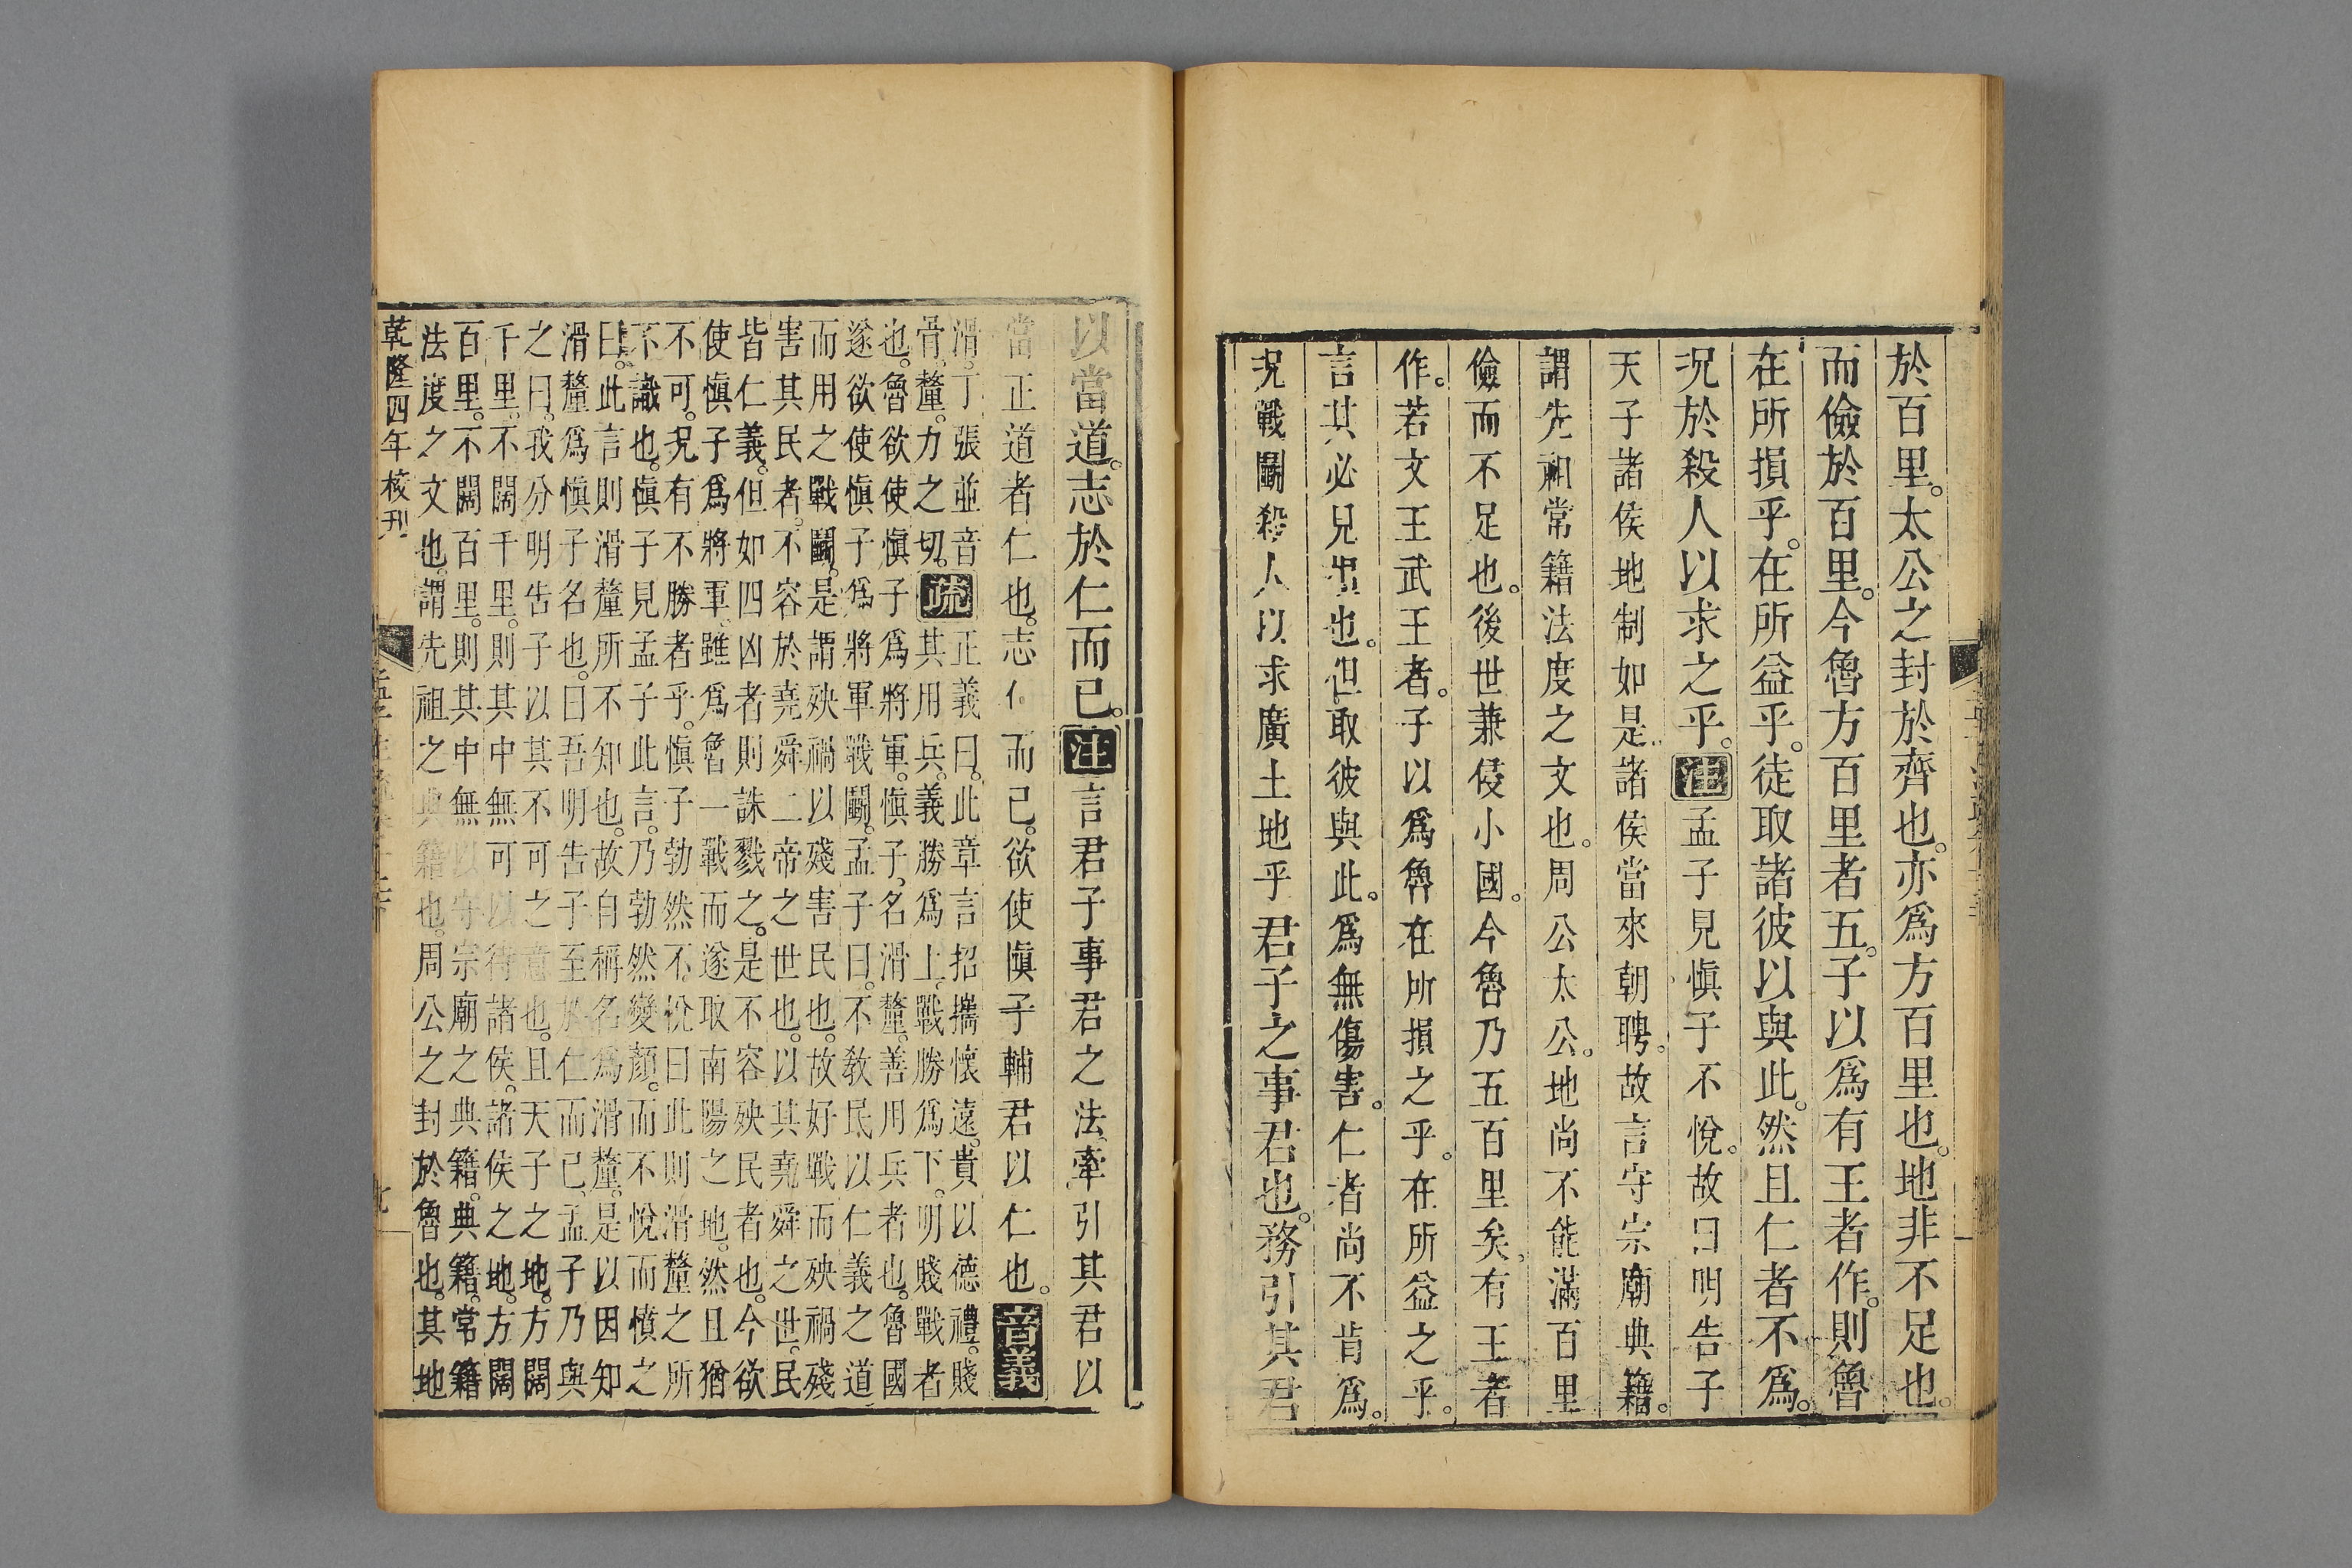 於百里。太公之封於齊也。亦爲方百里也。地非不足也。
而儉於百里。今魯方百里者五。子以爲有王者作。則魯
在所損乎。在所益乎。徒取諸彼以與此。然且仁者不爲。
況於殺人以求之乎。注孟子見愼子不悅。故曰明告子
天子諸侯地制如是。諸侯當來朝聘。故言守宗廟典籍。
謂先祖常籍法度之文也。周公太公。地尚不能滿百里
儉而不足也。後世兼侵小國。今魯乃五百里矣。有王者
作。若文王武王者。子以爲魯在所損之乎。在所益之乎。
言其必見損也。但取彼與此。爲無傷害。仁者尚不肯爲。
況戰鬭殺人以求廣土地乎君子之事君也。務引其君
以當道。志於仁而已。注言君子事君之法。牽引其君以
當正道者仁也。志仁而已。欲使愼子輔君以仁也。音義
滑。丁張並音
骨。釐。力之切。
疏
正義曰。此章言招攜懷遠。貴以德禮。賤
其用兵。義勝爲上。戰勝爲下。明賤戰者
也。魯欲使愼子爲將軍。愼子名滑釐。善用兵者也。魯國
遂欲使愼子爲將軍戰鬭。孟子曰。不敎民以仁義之道
而用之戰鬭。是謂殃禍以殘害民也。故好戰而殃禍殘
害其民者。不容於堯舜二帝之世也。以其堯舜之世。民
皆仁義。但如四凶者則誅戮之。是不容殃民者也。今欲
使愼子爲將軍。雖爲魯一戰而遂取南陽之地。然且猶
不可。況有不勝者乎。愼子勃然不悅曰此則滑釐之所
不識也。愼子見孟子此言。乃勃然變顏。而不悅而憤之
曰。此言則滑釐所不知也。故自稱名爲滑釐。是以因知
滑釐爲愼子名也。曰吾明告子至於仁而已。孟子乃與
之曰。我分明告子以其不可之意也。且天子之地。方闊
千里。不闊千里。則其中無可以待諸侯。諸侯之地。方闊
百里。不闊百里。則其中無以守宗廟之典籍。典籍。常籍
法度之文也。謂先祖之典籍也。周公之封於魯也。其地
乾隆四年校刊